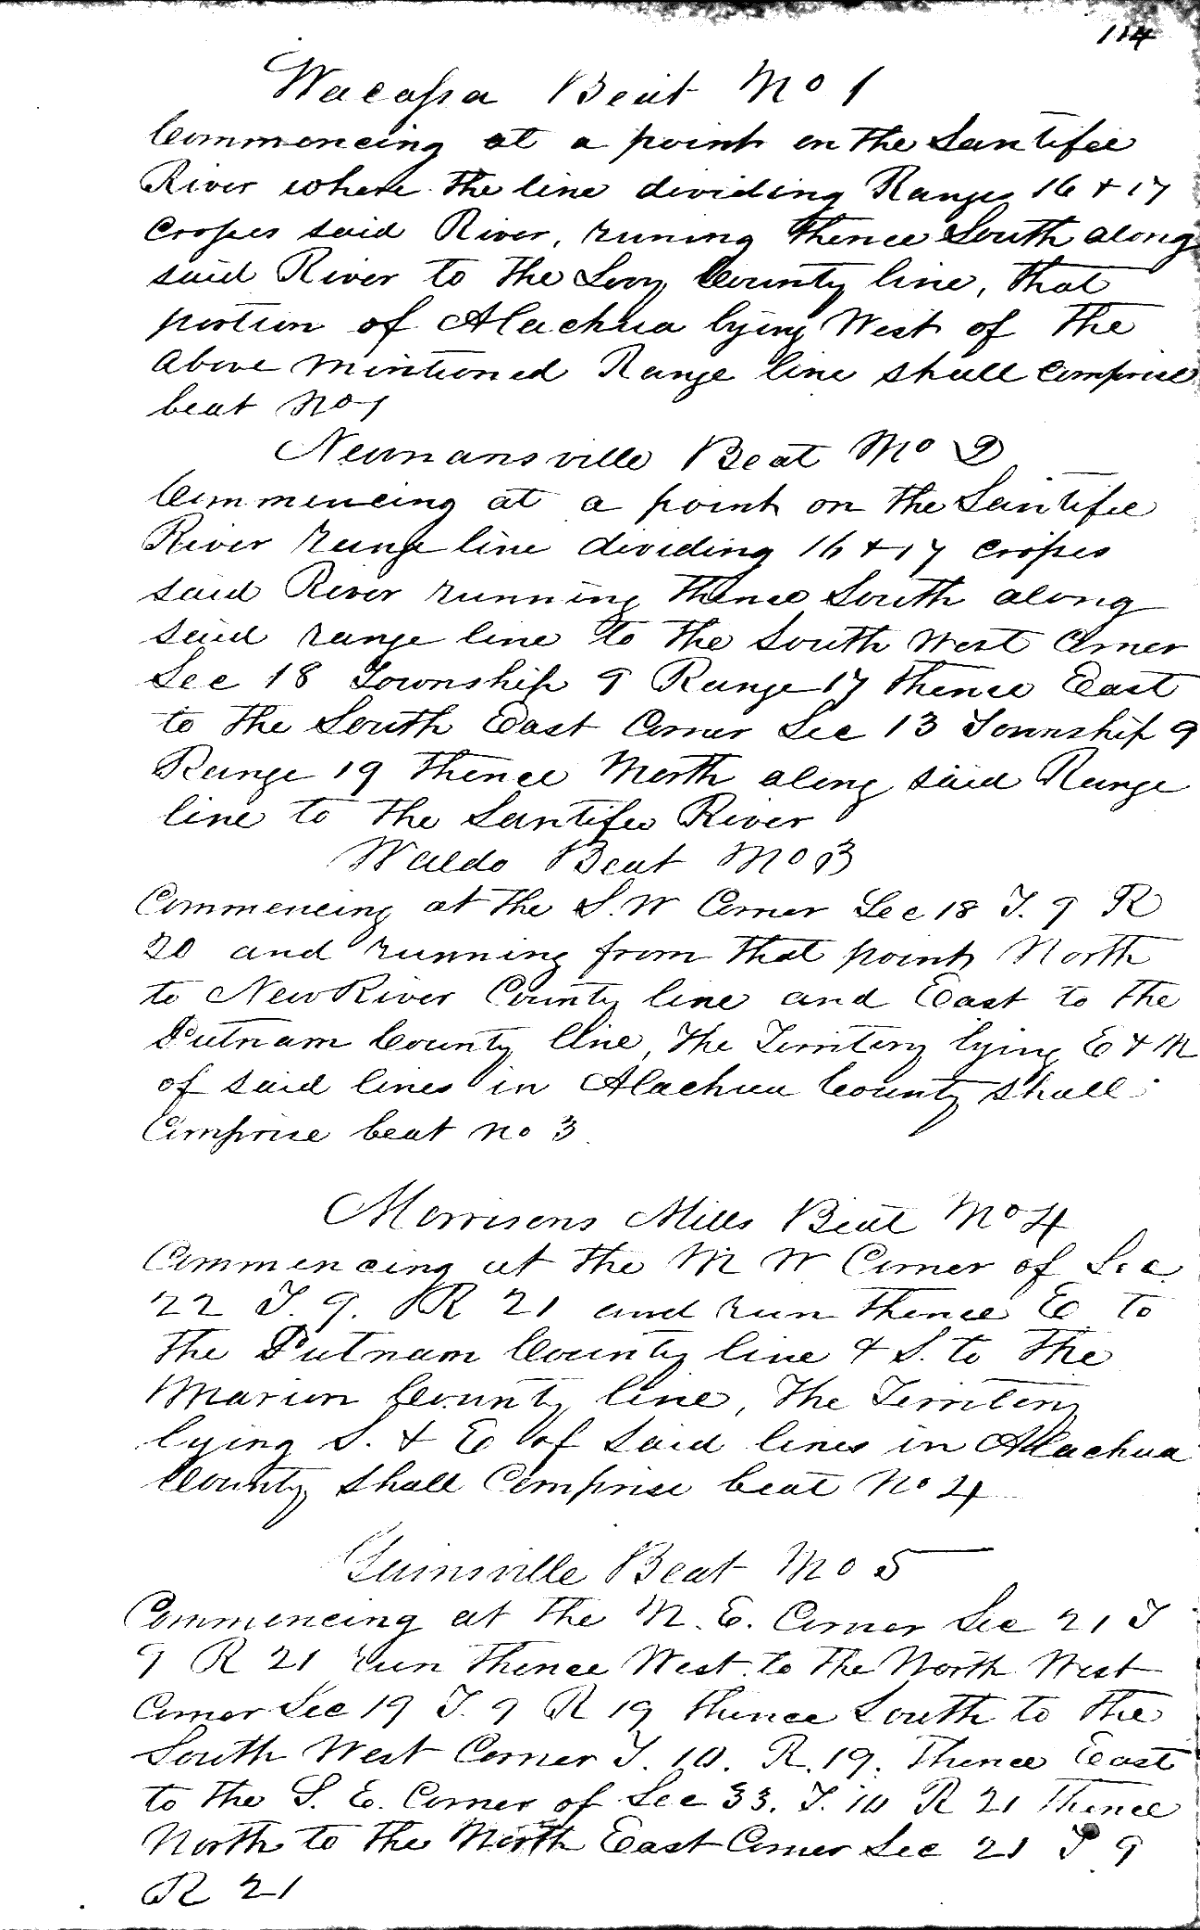 114
Wacassa Beat No 1
Commencing at a point on the Santifee
River where the line dividing Ranges 16 & 17
crosses said River, runing thence South along
said River to the Levy County line, that
portion of Alachua lying West of the
above mentioned Range line shall comprise
beat No 1
Newnansville Beat No 2
Commencing at a point on the Santifee
River range line dividing 16 & 17 crosses
said River running thence South along
said range line to the South West Corner
Sec 18 Township 9 Range 17 thence East
to the South East Corner Sec 13 Township 9
Range 19 thence North along said Range
line to the Santifee River
Waldo Beat No 3
Commencing at the S.W Corner Sec 18 T. 9 R
20 and running from that point North
to New River County line and East to the
Putnam County line, The Territory lying E & N
of said lines in Alachua County shall
Comprise beat no 3
Morrisons Mills Beat No 4
Commencing at the N W Corner of Sec
22 T. 9. R 21 and run thence E to
the Putnam County line & S. to the
Marion County line, The Territory
lying S. & E of said lines in Alachua
County shall Comprise beat No 4
Gainsville Beat No 5
Commencing at the N. E. Corner Sec 21 T
9 R 21 run thence West to the North West
Corner Sec 19 T. 9 R 19 thence South to the
South West Corner T. 10. R. 19. Thence East
to the S. E. Corner of Sec 33. T. 10 R 21 thence
North to the North East Corner Sec 21 T 9
R 21